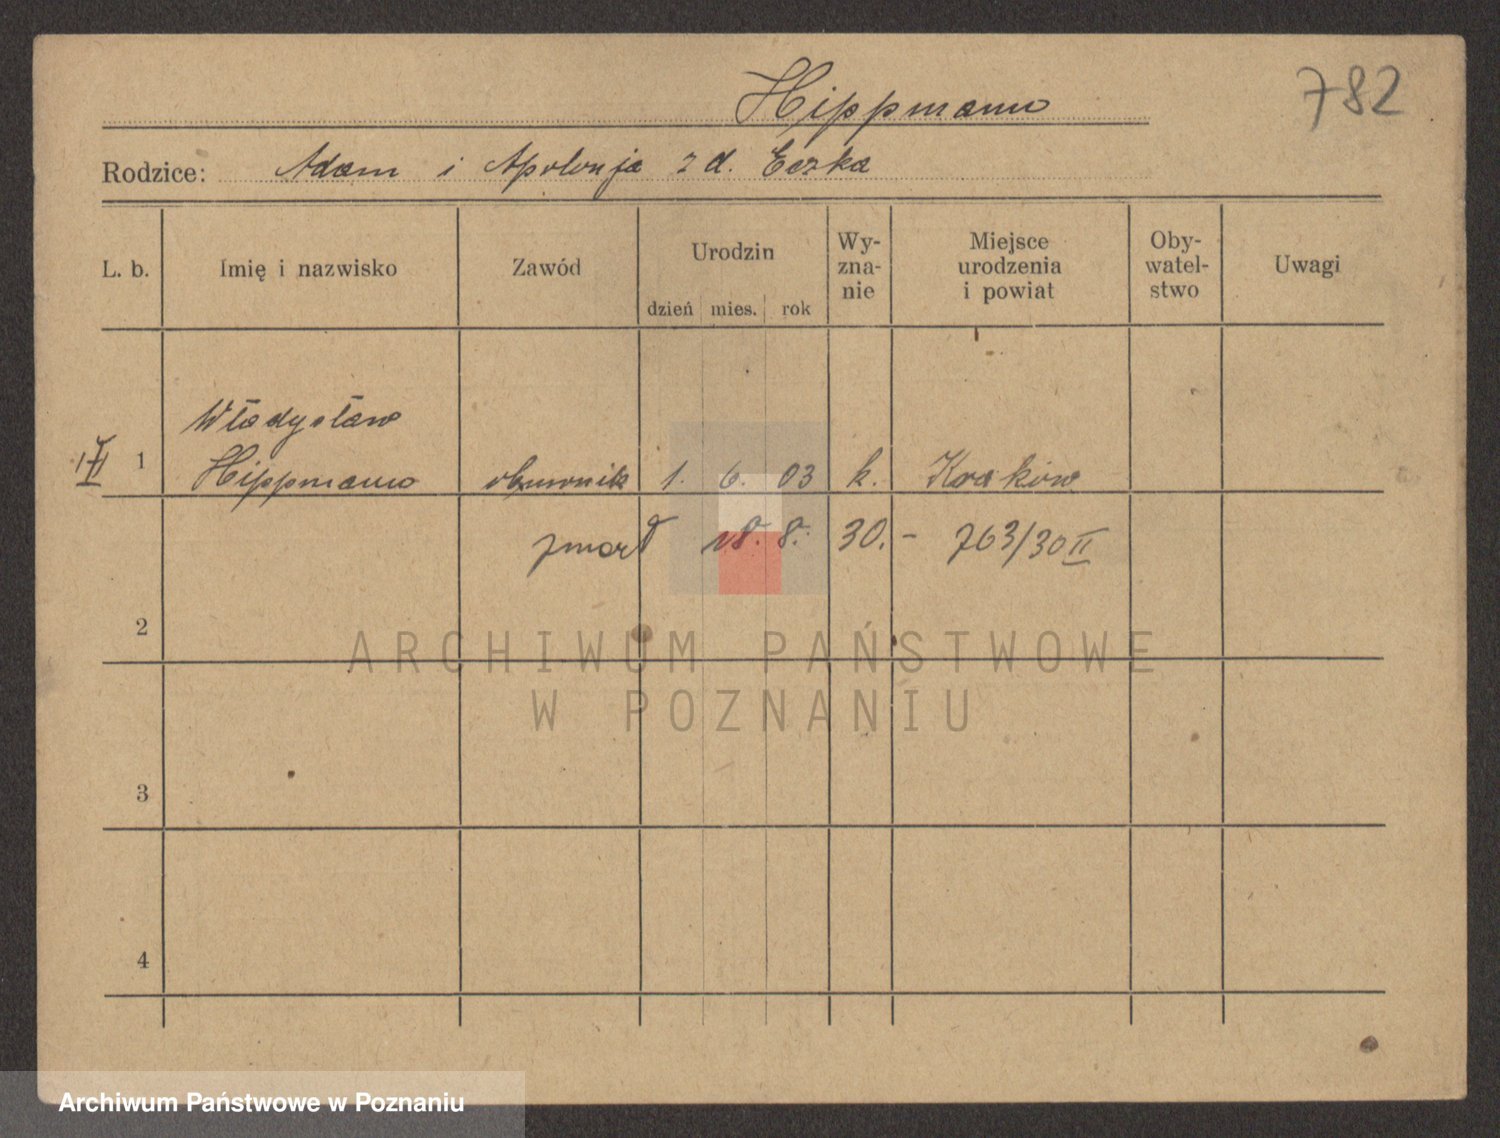 Hippmann
782
Rodzice: Adam i Apolonja z d. Eczka
L. b. Imię i nazwisko Zawód Urodzin dzień mies. rok Wy-zna-nie Miejsce urodzenia i powiat Oby-watel-stwo Uwagi
Władysław
1 Hippmann 1. 6. 03 k. Kraków
zmarł 18. 8. 30. - 763/30 II
2
ARCHIWUM PAŃSTWOWE
W POZNANIU
3
4
Archiwum Państwowe w Poznaniu